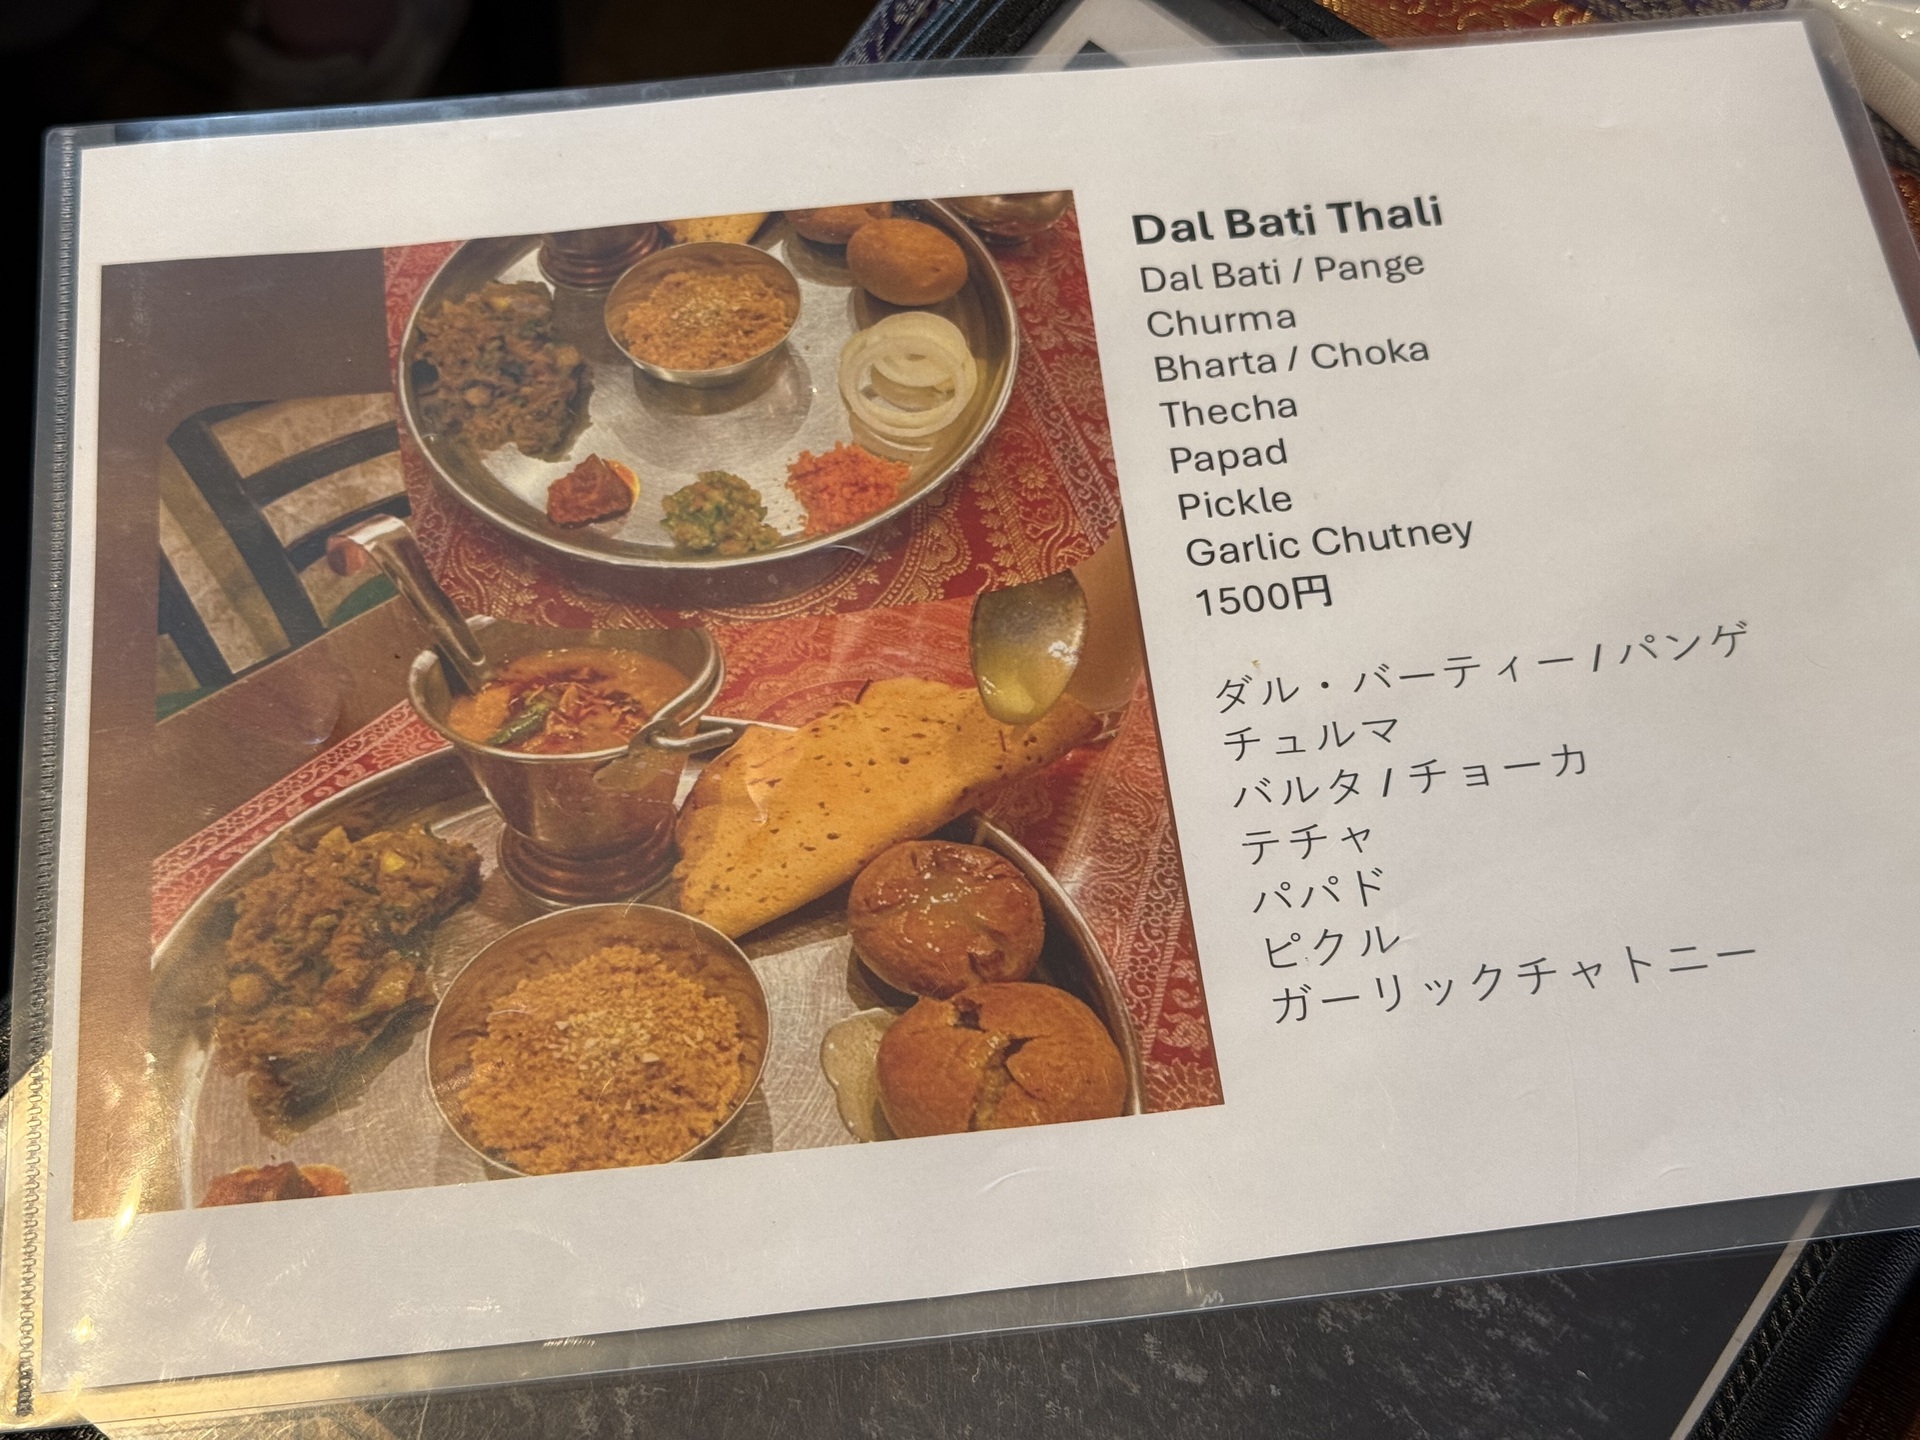 Dal Bati Thali
Dal Bati / Pange
Churma
Bharta / Choka
Thecha
Papad
Pickle
Garlic Chutney
1500円
ダル・バーティー / パンゲ
チュルマ
バルタ / チョーカ
テチャ
パパド
ピクル
ガーリックチャトニー